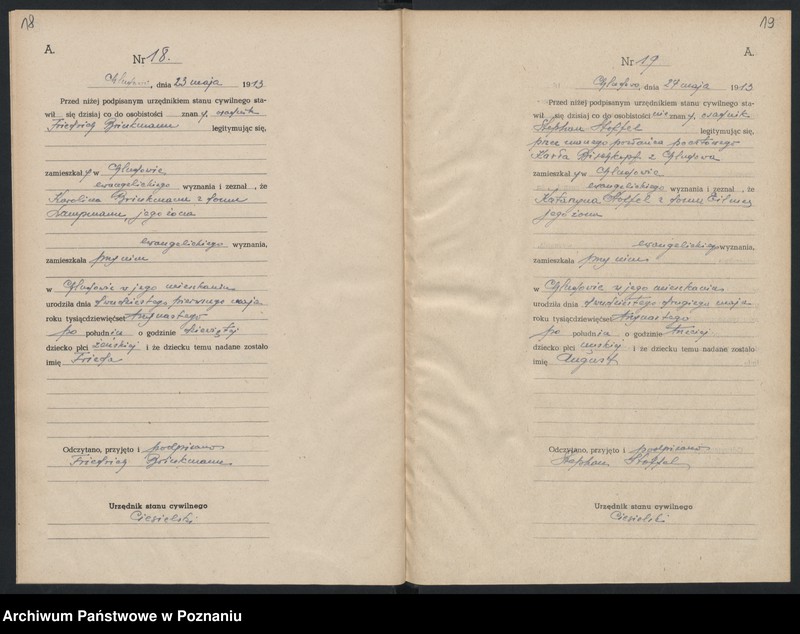 18
A.
Nr 18.
Chludowo, dnia 23 maja 1913
Przed niżej podpisanym urzędnikiem stanu cywilnego sta-
wił się dzisiaj co do osobistości znany, osadnik
Friedrich Brinkmann legitymując się,
zamieszkały w Chludowie
ewangelickiego wyznania i zeznał, że
Karolina Brinkmann z domu
jego żona
ewangelickiego wyznania,
zamieszkała przy nim
w Chludowie w jego mieszkaniu
urodziła dnia dwudziestego pierwszego maja
roku tysiącdziewięćset trzynastego
po południu o godzinie dziewiątej
dziecko płci żeńskiej i że dziecku temu nadane zostało
imię Frieda
Odczytano, przyjęto i podpisano
Friedrich Brinkmann
Urzędnik stanu cywilnego
Ciesielski
19
A.
Nr 19
Chludowo, dnia 24 maja 1913
Przed niżej podpisanym urzędnikiem stanu cywilnego sta-
wił się dzisiaj co do osobistości nieznany, osadnik
Stephan Stoffel legitymując się,
przez znanego posłańca pocztowego
Karla z Chludowa
zamieszkały w Chludowie
ewangelickiego wyznania i zeznał, że
Katarzyna Stoffel z domu
jego żona
ewangelickiego wyznania,
zamieszkała przy nim
w Chludowie w jego mieszkaniu
urodziła dnia dwudziestego drugiego maja
roku tysiącdziewięćset trzynastego
po południu o godzinie trzeciej
dziecko płci męskiej i że dziecku temu nadane zostało
imię August
Odczytano, przyjęto i podpisano
Stephan Stoffel
Urzędnik stanu cywilnego
Ciesielski
Archiwum Państwowe w Poznaniu